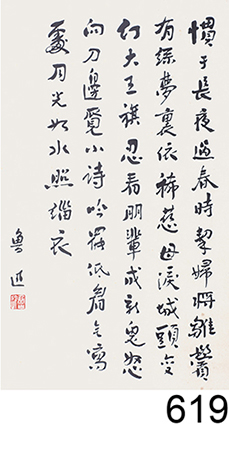 慣于長夜過春時挈婦將雛鬢
有絲夢裏依稀慈母淚城頭變
幻大王旗忍看朋輩成新鬼怒
向刀邊覓小詩吟罷低眉無寫
處月光如水照緇衣
魯迅
619